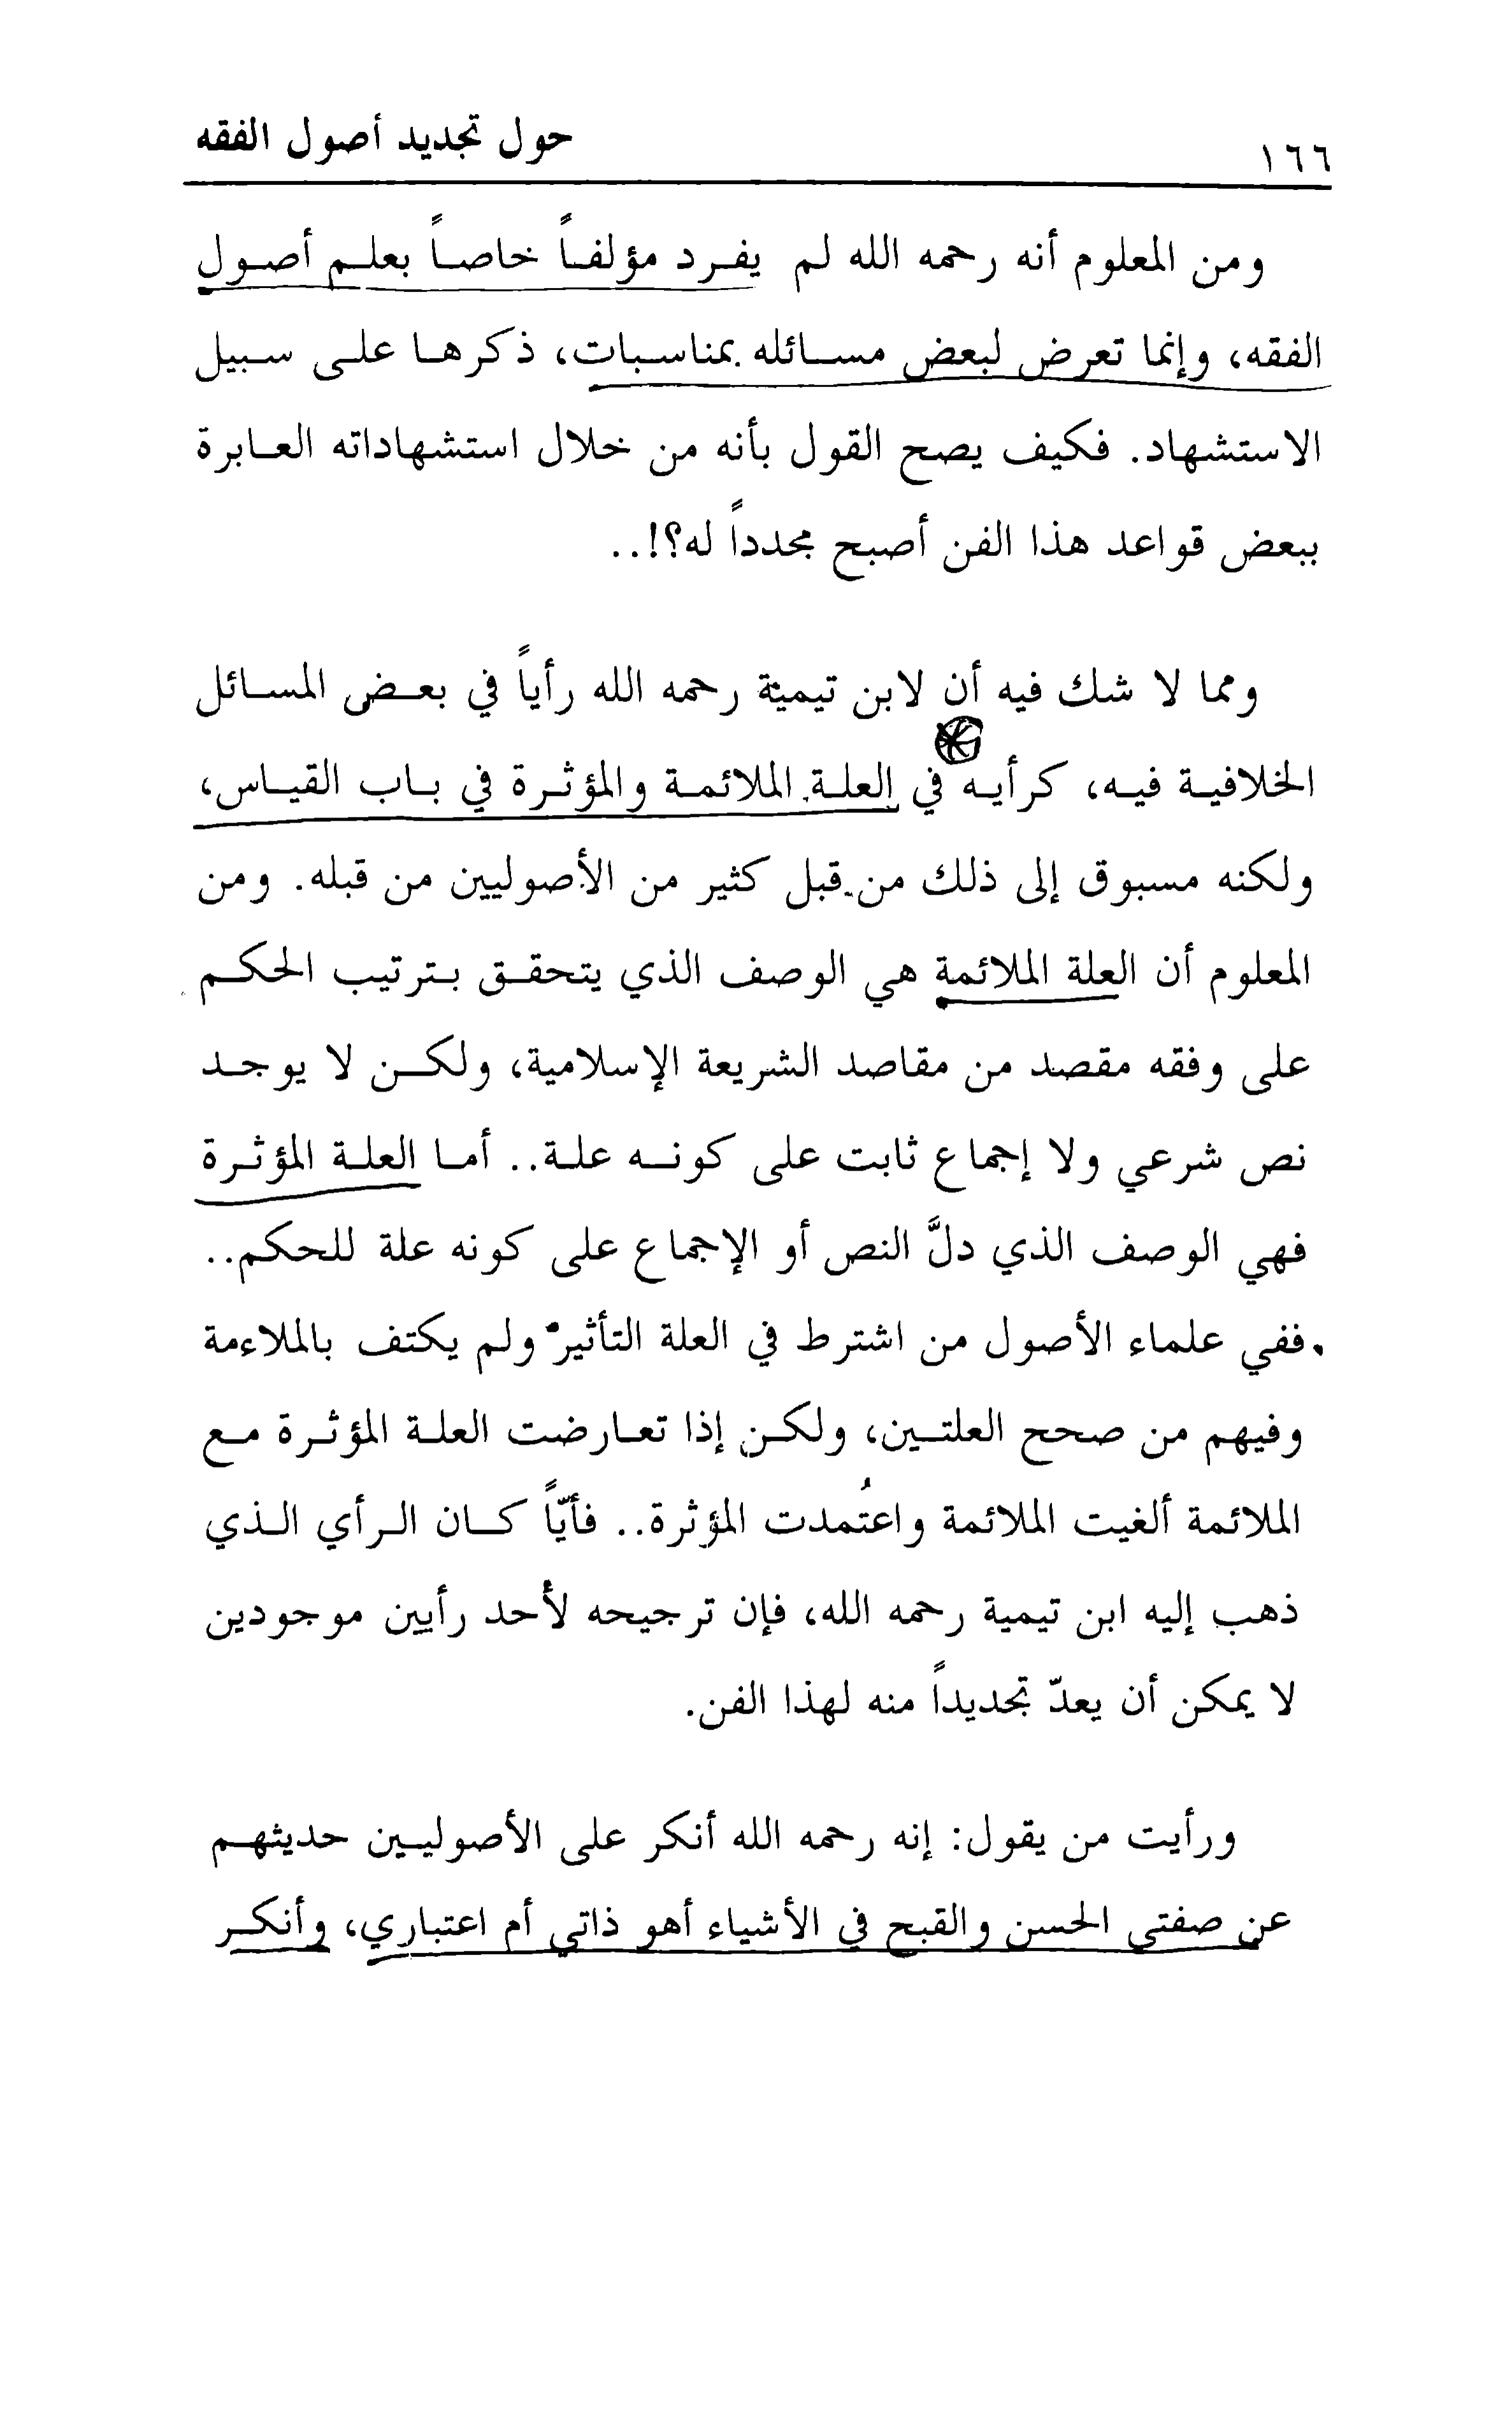 ١٦٦
حول تجديد أصول الفقه
ومن المعلوم أنه رحمه الله لم يفرد مؤلفاً خاصاً بعلم أصول
الفقه، وإنما تعرض لبعض مسائله بمناسبات، ذكرها على سبيل
الاستشهاد. فكيف يصح القول بأنه من خلال استشهاداته العابرة
ببعض قواعد هذا الفن أصبح مجدداً له؟!..
ومما لا شك فيه أن لابن تيمية رحمه الله رأياً في بعض المسائل
الخلافية فيه، كرأيه في العلة الملائمة والمؤثرة في باب القياس،
ولكنه مسبوق إلى ذلك من قبل كثير من الأصوليين من قبله. ومن
المعلوم أن العلة الملائمة هي الوصف الذي يتحقق بترتيب الحكم
على وفقه مقصد من مقاصد الشريعة الإسلامية، ولكن لا يوجد
نص شرعي ولا إجماع ثابت على كونه علة.. أما العلة المؤثرة
فهي الوصف الذي دلَّ النص أو الإجماع على كونه علة للحكم..
ففي علماء الأصول من اشترط في العلة التأثير ولم يكتف بالملاءمة
وفيهم من صحح العلتين، ولكن إذا تعارضت العلة المؤثرة مع
الملائمة ألغيت الملائمة واعتُمدت المؤثرة.. فأيّاً كان الرأي الذي
ذهب إليه ابن تيمية رحمه الله، فإن ترجيحه لأحد رأيين موجودين
لا يمكن أن يعدّ تجديداً منه لهذا الفن.
ورأيت من يقول: إنه رحمه الله أنكر على الأصوليين حديثهم
عن صفتي الحسن والقبح في الأشياء أهو ذاتي أم اعتباري، وأنكر